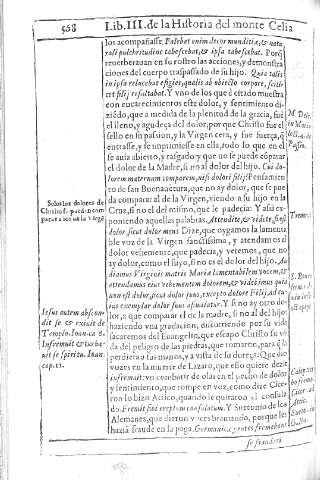 568 Lib. III. de la Historia del monte Celia
los acompañasse. Palebat enim decor munditiæ, & natu
rali pulchritudine tabescebat, & ipsa tabescebat. Porq̃
reuerberauan en su rostro las acciones, y demonstra
ciones del cuerpo traspassado de su hijo. Quia talis
in ipsa relucebat efigies, qualis ab obiecto corpore, scili
cet filij resultabat. Y vno de los que è estado muestra
con encarecimientos este dolor, y sentimiento di-
ziẽdo, que a medida de la plenitud de la gracia, fuè
el lleno, y agudeça del dolor, por que Christo fue el
sello en su passion, y la Virgen cera, y fue fuerça, q̃
entrasse, y se imprimiesse en ella, todo lo que en el
se auia abierto, y rasgado y que no se puede coparar
el dolor de la Madre, si no al dolor del hijo. Cui do
lorem matre num comparem, nisi dolori filij: Pensamien
to de san Buenauētura, que no ay dolor, que se pue
da comparar al de la Virgen, viendo a su hijo en la
Cruz, si no el del mismo, que le padecia: Y assi ex-
poniendo aquellas palabras. Attendite, & videte, si est
dolor sicut dolor meus Dize, que oygamos la lamenta
ble voz de la Virgen sanctissima, y atendamos al
dolor vehemente, que padecia, y veremos, que no
ay dolor, como el suyo, si no es el dolor del hijo. Au
diamus Virginis matris Mariæ lamentabilem vocem, &
attendamus eius vehementem dolorem, & videbimus quia
non est dolor sicut dolor suus, excepto dolore Filij, ad cu
ius exemplar dolor suus assimilatur. Y si no ay otro do-
lor, a que comparar el de la madre, si no al del hijo:
haziendo vna gradacion, discurriendo por su vida
sacaremos del Euangelio, que escapo Christo su vi
da del peligro de las piedras, que tomaron, para q̃ la
perdiera a sus manos, y a vista de su dureça: Que dio
vozes en la muerte de Lazaro, que esso quiere dezir
infremuit: vn combatir de olas en el pecho de dolor
y sentimiento, que rompe en voz, como dize Cice-
ron lo hizo Actico, quando le quitaron el consula
do. Fremit sibi ereptum consulatum. Y Suetonio de los
Alemanes, que dieron y vezes bramando, porque les
hizia fraude en la paga. Germanicæ gentes fremebant
se fraudari
Solo los dolores de
Christo se puedẽ com
parar a los de la Virgẽ
Iesus autem abscon
dit se & exiuit de
Templo. Ioann. c. 8.
Infremuit & turba-
uit se spiritu. Ioan.
cap. 11.
Passio.
Tren.